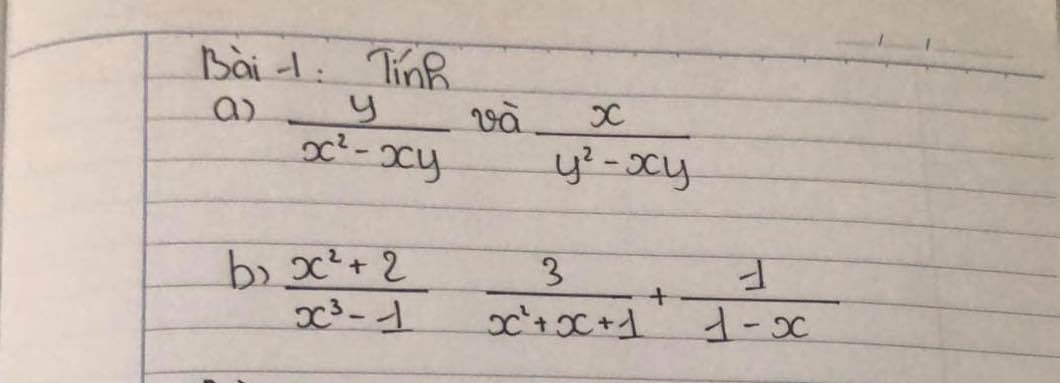 Bài 1: Tính
a) y/(x² - xy) và x/(y² - xy)
b) (x² + 2)/(x³ - 1) 3/(x² + x + 1) + 1/(1 - x)